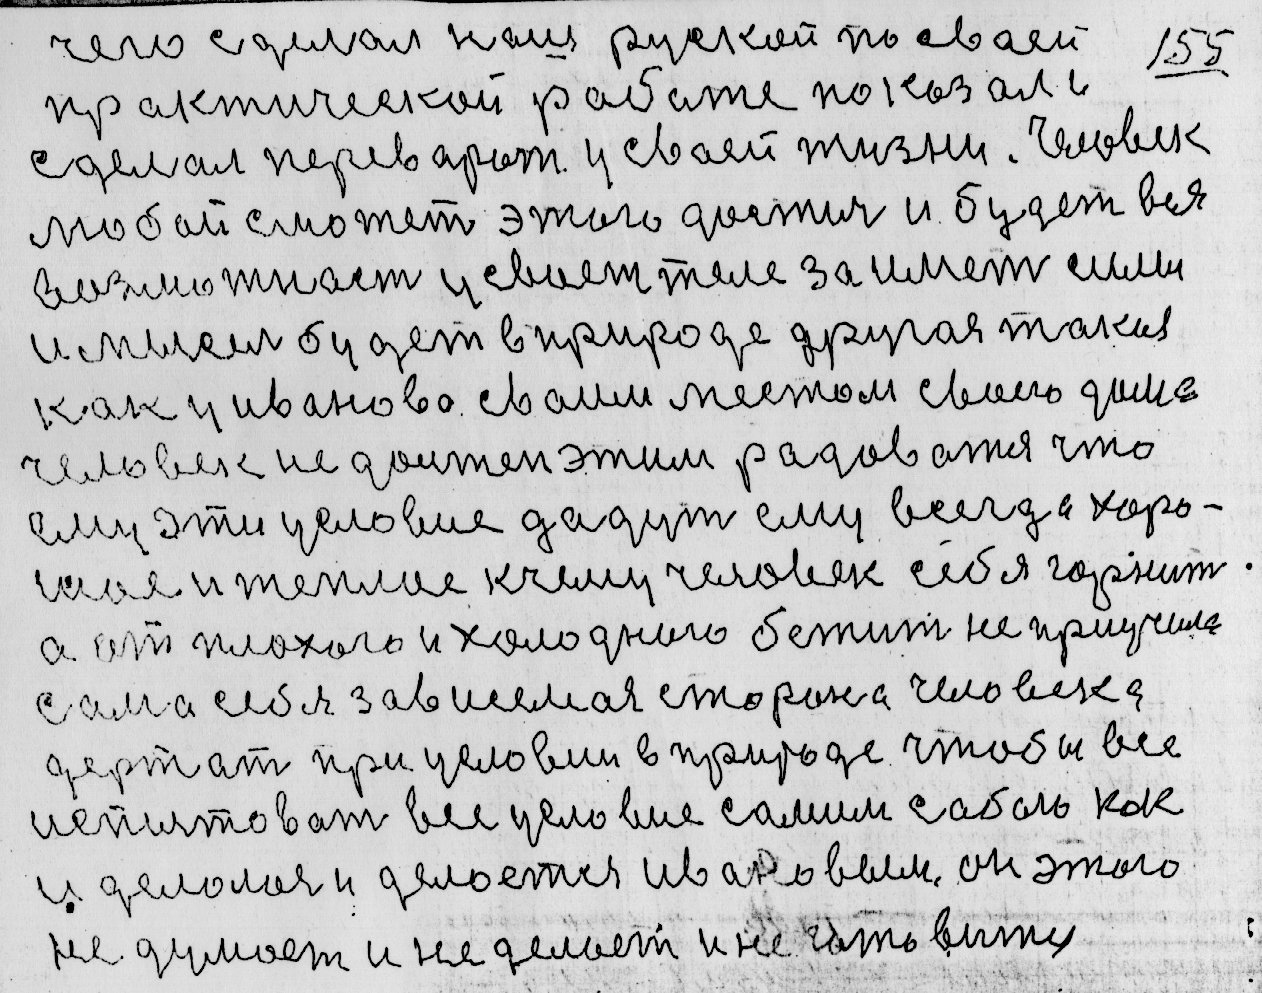 чего сделал наш руской по сваей 155
практическойработе показал и
сделал переварот у сваей жизни. Человек
любой сможет этого достич и будет вся
возможност у своем теле заимет силы
и мысел будет в природе другая такая
как у иванова своим местом своего дома
человек не должен этим радоватя что
ему эти условие дадут ему всегда харо-
шое и теплое к чему человек себя горнит.
а от плохого и холодного бежит не приучила
сама себя зависемая сторона человека
держат при условии в природе чтобы все
испытоват все условие самим саболь как
и делолоя и делоется Ивановым. он этого
не думоет и не делоет и не